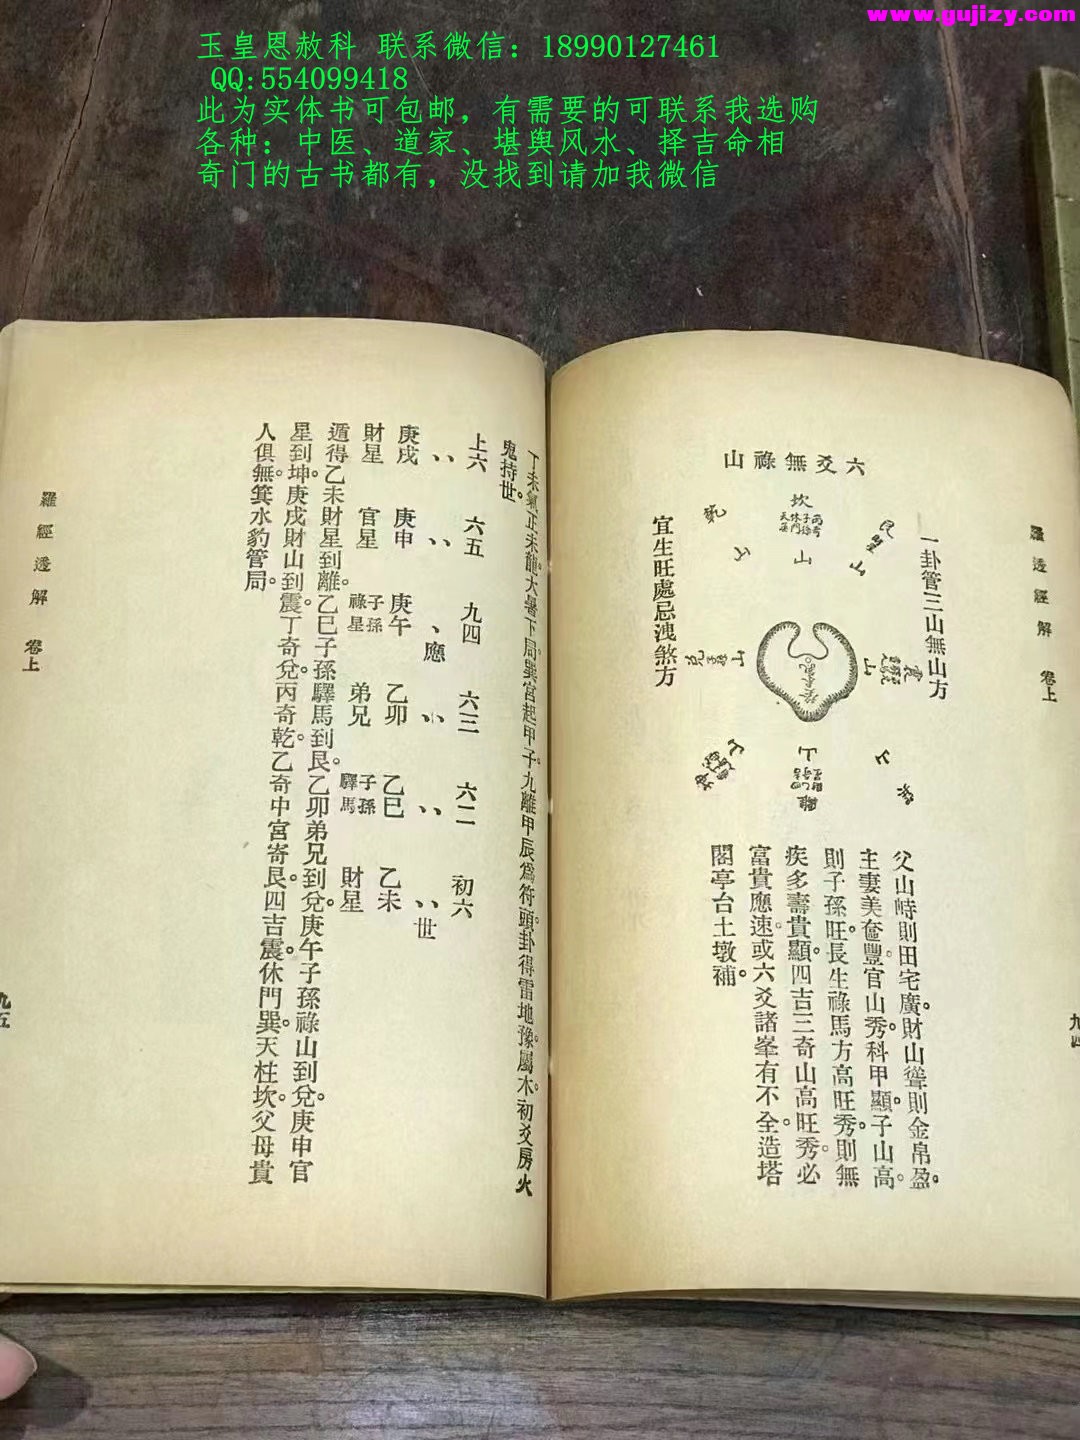 www.gujizy.com
玉皇恩赦科 联系微信：18990127461
QQ:554099418
此为实体书可包邮，有需要的可联系我选购
各种：中医、道家、堪舆风水、择吉命相
奇门的古书都有，没找到请加我微信
羅透經解 卷上
九四
六爻無祿山
一卦管三山無山方
宜生旺處忌洩煞方
坎
山
艮
山
山
兌
山
震
山
山
離
父山峙則田宅廣。財山聳則金帛盈。
主妻美奩豐。官山秀。科甲顯。子山高。
則子孫旺。長生祿馬方高旺秀。則無
疾多壽貴顯。四吉三奇山高旺秀。必
富貴應速。或六爻諸峯有不全。造塔
閣亭台土墩補。
丁未氣正未龍。大暑下局。巽宮起甲子。九離甲辰為符頭。卦得雷地豫。屬木。初爻房火
鬼持世。
上六 六五 九四 六三 六二 初六
應 世
庚戌 庚申 庚午 乙卯 乙巳 乙未
財星 官星 子孫祿星 弟兄 子孫驛馬 財星
遁得乙未財星到離。乙巳子孫驛馬到艮。乙卯弟兄到兌。庚午子孫祿山到兌。庚申官
星到坤。庚戌財山到震。丁奇兌。丙奇乾。乙奇中宮寄艮。四吉震。休門巽。天柱坎。父母貴
人俱無。箕水豹管局。
羅經透解 卷上
九五